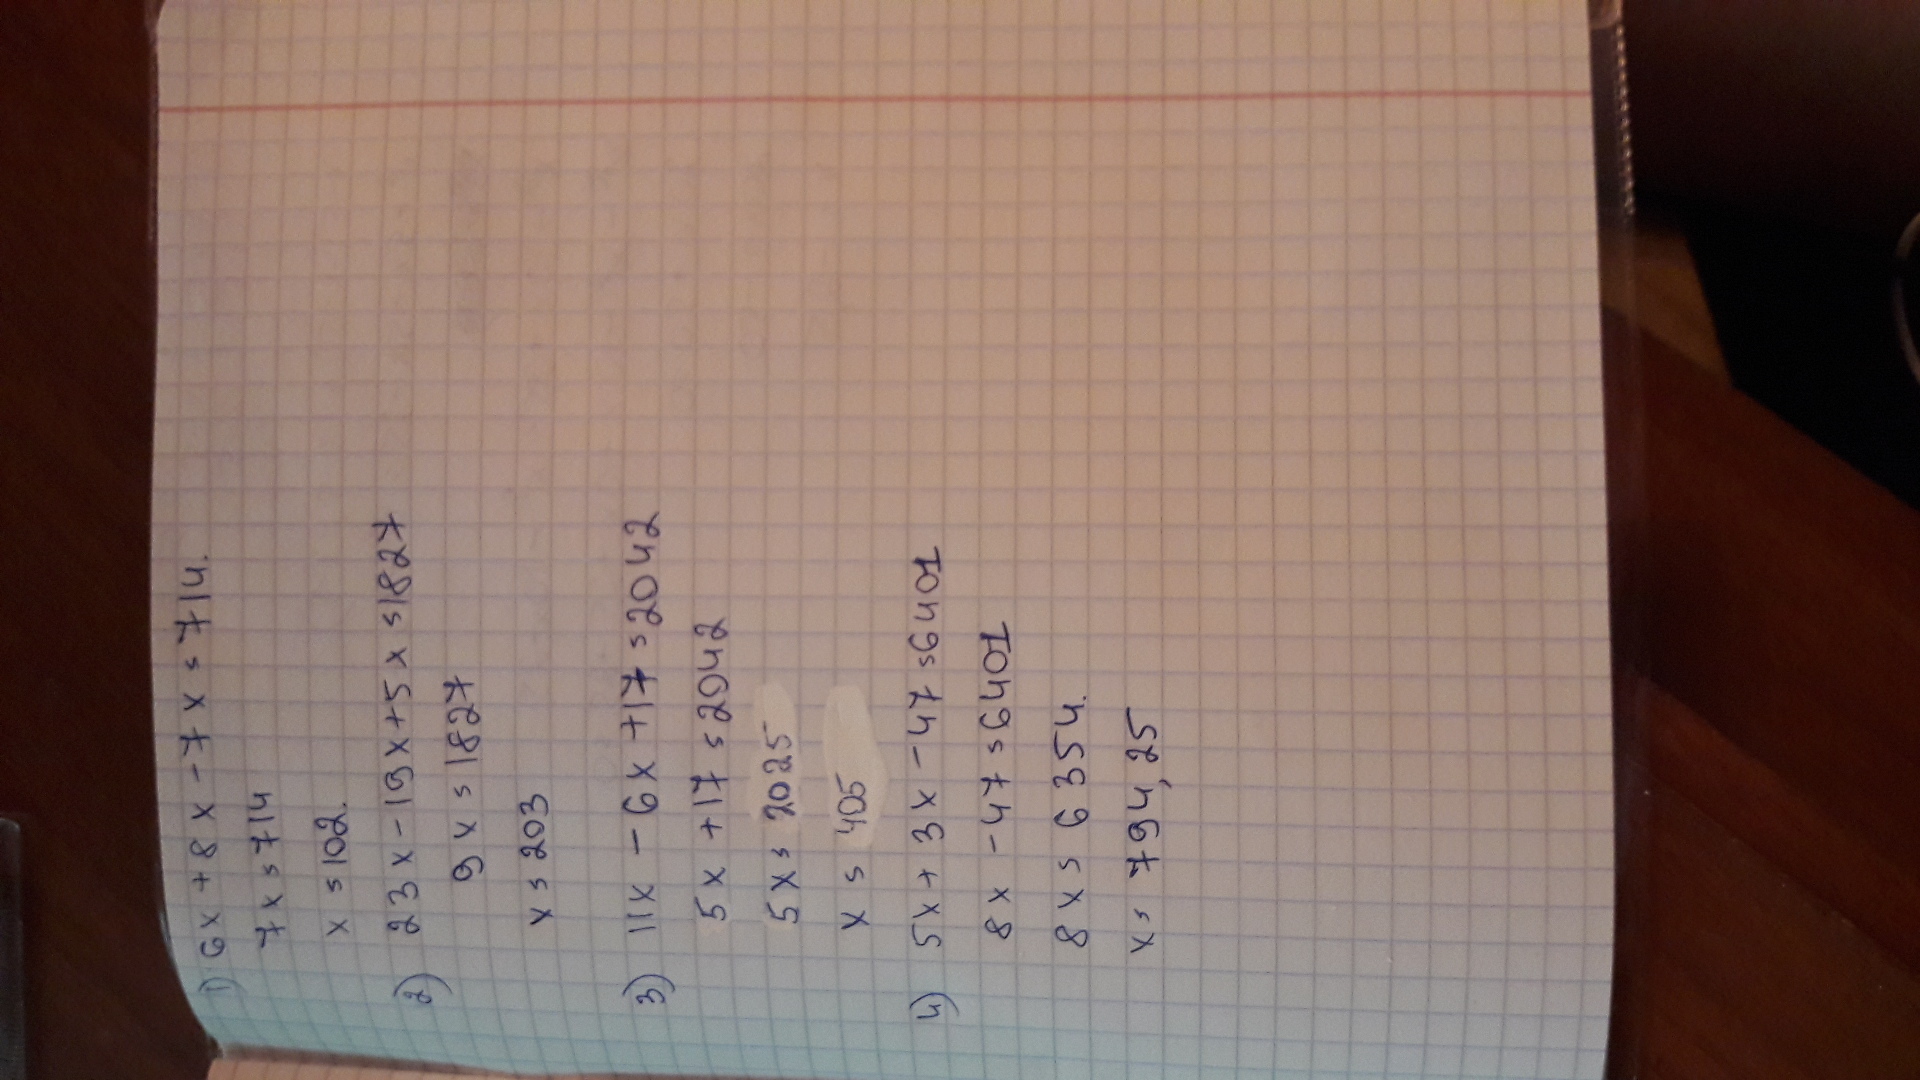 1) 6x + 8x - 7x = 714.
7x = 714
x = 102.
2) 23x - 19x + 5x = 1827
9x = 1827
x = 203
3) 11x - 6x + 17 = 2042
5x + 17 = 2042
5x = 2025
x = 405
4) 5x + 3x - 47 = 6401
8x - 47 = 6401
8x = 6354.
x = 794,25